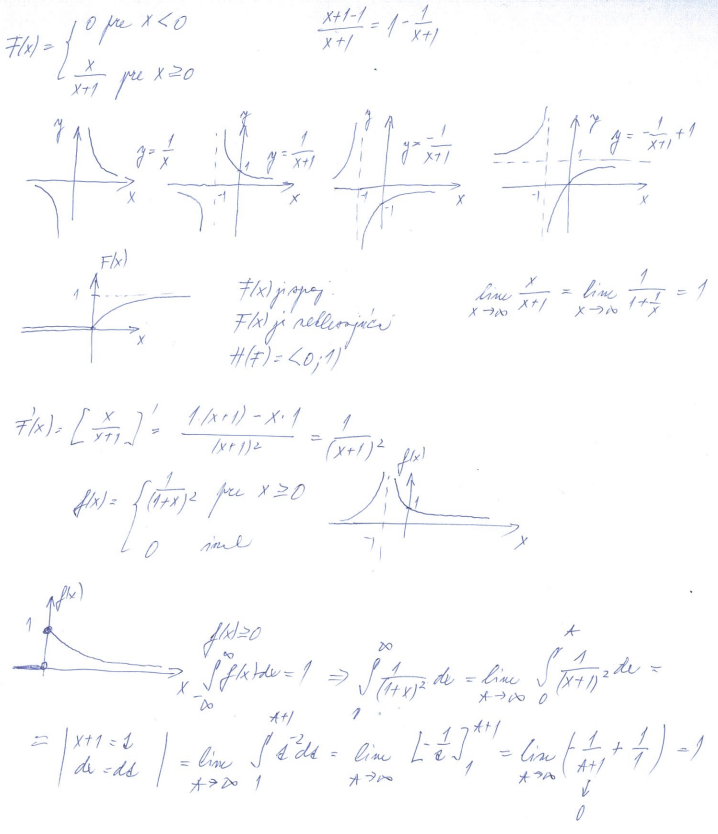 F(x) = { 0 pre x < 0
x/(x+1) pre x ≥ 0
(x+1-1)/(x+1) = 1 - 1/(x+1)
y x y = 1/x
y x 1 -1 y = 1/(x+1)
y x -1 -1 y = -1/(x+1)
y x 1 -1 y = -1/(x+1) + 1
F(x) 1 x
F(x) je spoj.
F(x) je neklesajúca
H(F) = <0;1)
lim x→∞ x/(x+1) = lim x→∞ 1/(1+1/x) = 1
F'(x) = [x/(x+1)]' = (1(x+1) - x·1)/(x+1)² = 1/(x+1)²
f(x) = { 1/(1+x)² pre x ≥ 0
0 inde
f(x) 1 -1 x
f(x) 1 x
f(x) ≥ 0
∫_{-∞}^{∞} f(x)dx = 1 ⇒ ∫_{1}^{∞} 1/(1+x)² dx = lim A→∞ ∫_{0}^{A} 1/(x+1)² dx =
= | x+1 = t dx = dt | = lim A→∞ ∫_{1}^{A+1} t⁻² dt = lim A→∞ [-1/t]_{1}^{A+1} = lim A→∞ (-1/(A+1) + 1/1) = 1
↓
0